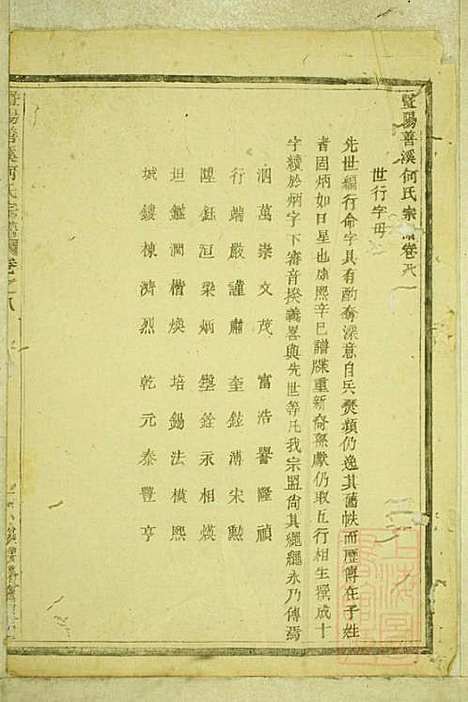 暨陽善溪何氏宗譜卷之八
世行字母
先世編行命字具有酌奪深意自兵燹頻仍逸其舊帙而歷傳在子姓
者固炳如日星也康熙辛巳譜牒重新裔孫獻仍取五行相生撰成十
字續於炳字下審音揆義畧與先世等凡我宗盟尙其繩繩永乃傳焉
泗萬崇文茂 富浩譽隆禎
行端嚴謹肅 奎鉉溥宋勲
陞鈺洹梁炳 壂銓永相煐
坦鑑潤楷煥 培錫法模熙
城鏤棟濟烈 乾元泰豐亨
暨陽善溪何氏宗譜卷之八